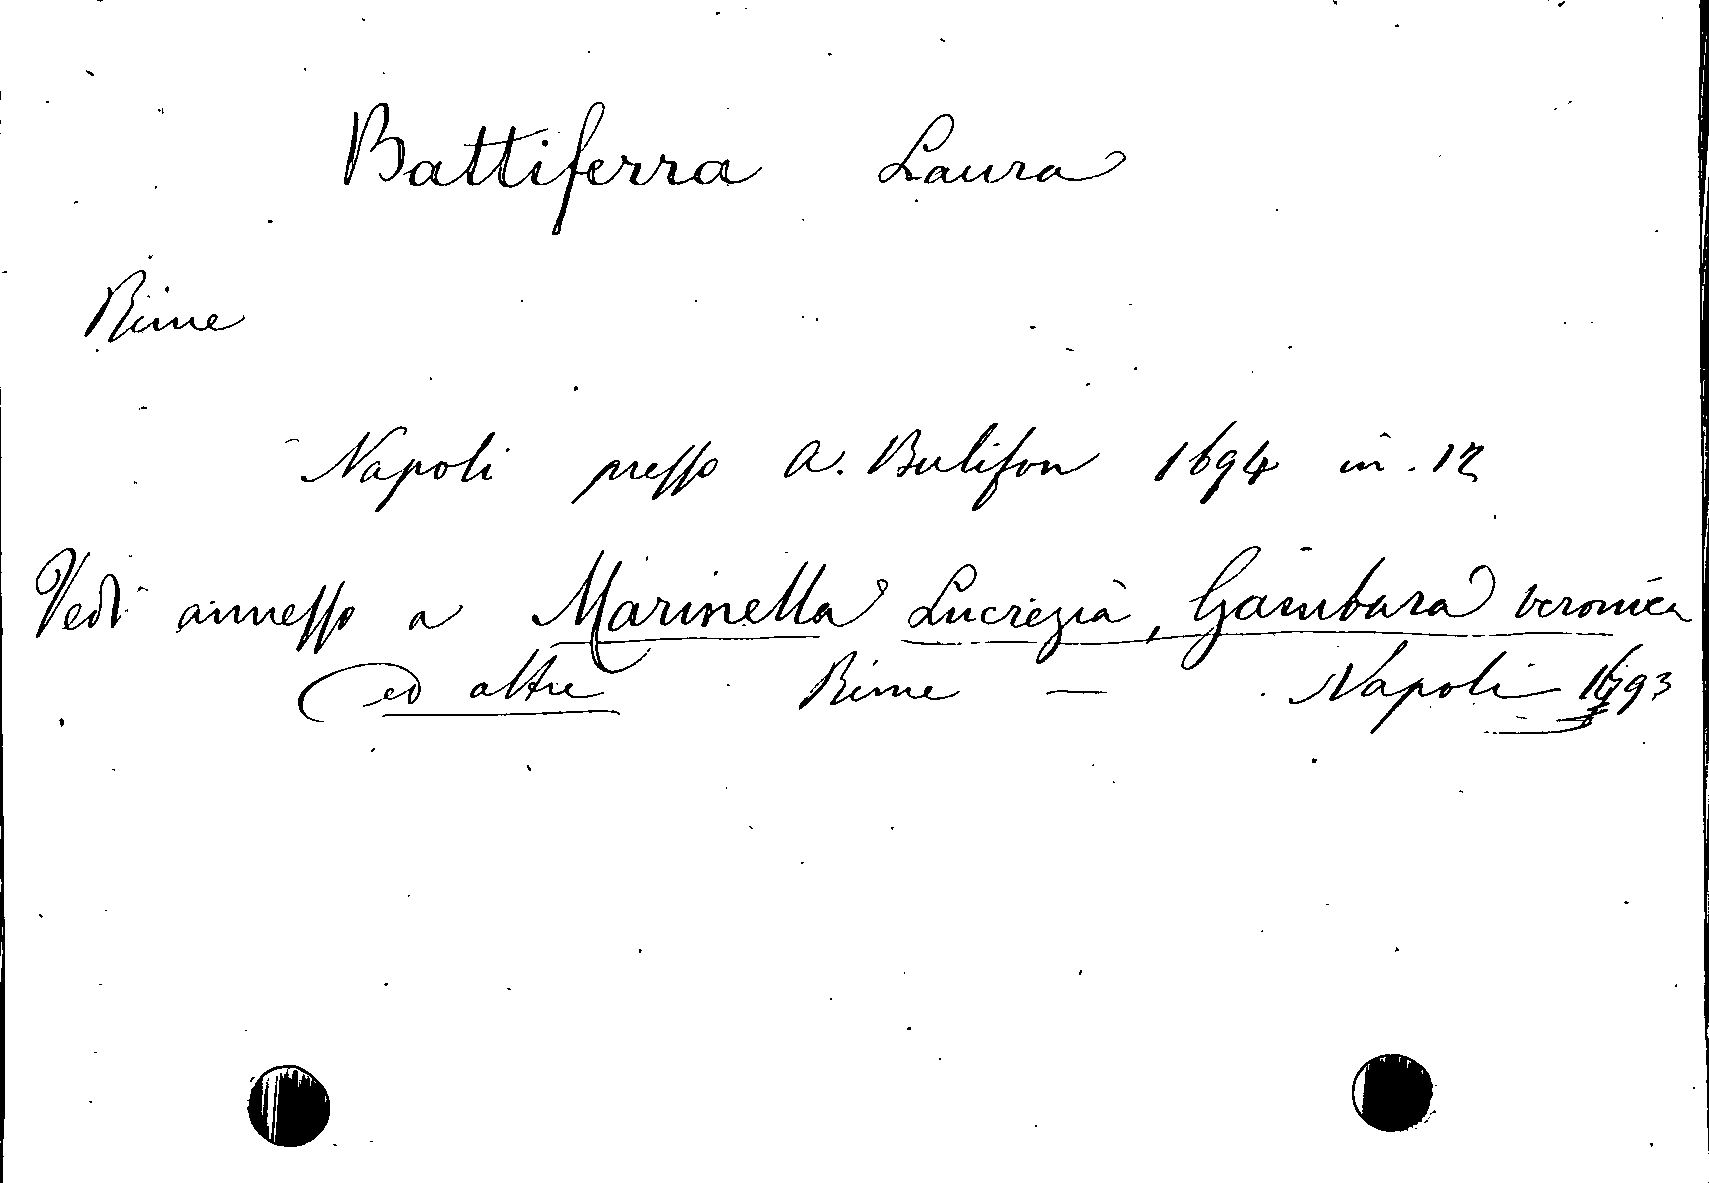 Battiferra Laura
Rime
Napoli presso A. Bulifon 1694 in. 12
Vedi annesso a Marinella Lucrezia, Gambara Veronica
ed altre Rime — Napoli 1693